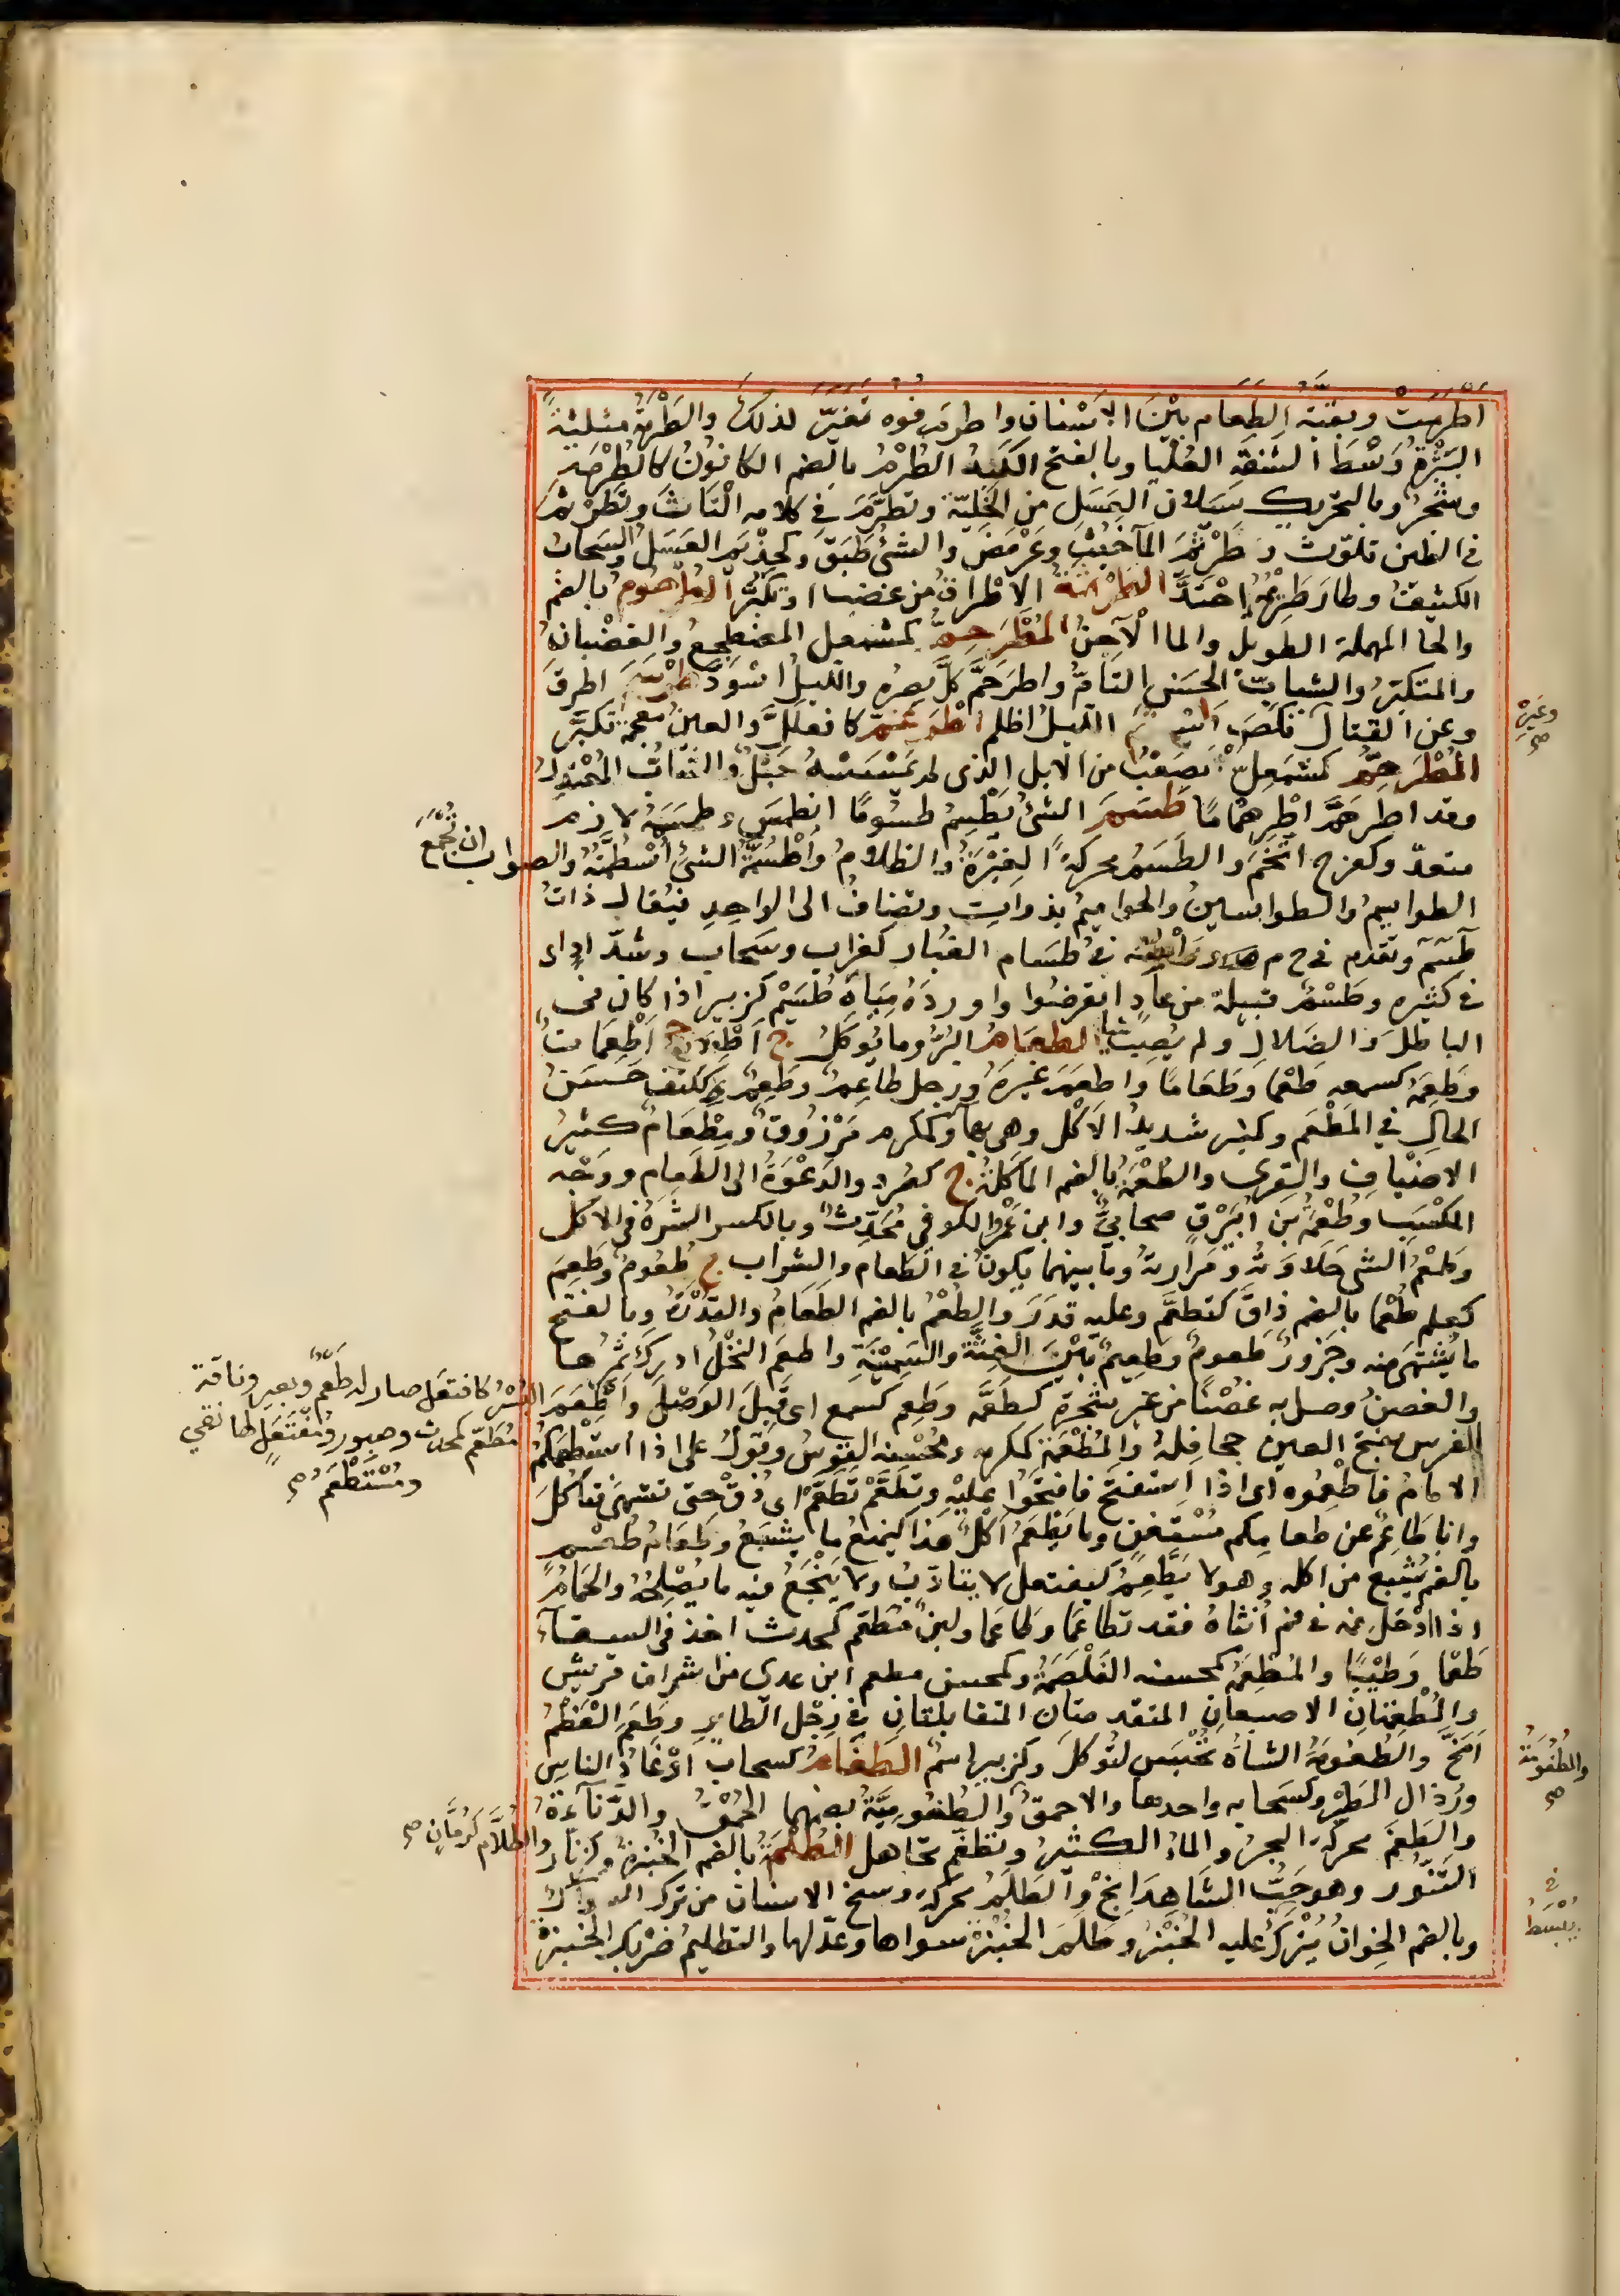 اطرمت وبقية الطعام بين الاسنان واطرم فوه تغير لذلك والطرمة مثلثة
النبرة وسط الشفة العليا وبالفتح الكبد الطرم بالضم الكانون كالطرمة
وشجر وبالتحريك سيلان العسل من الخلية وتطرم في كلامه التاث وتطرثم
في الطين تلوث وطريم المآ خبث وعرمض والشئ طبق وكحذيم العسل والسحاب
الكثيف وطار طريمه احتد الطرثمة الاطراق من غضب او تكبر الطرحوم بالضم
والحا المهملة الطويل والما الآجن المطرخم كمشمعل المضطجع والغضبان
والمتكبر والشباب الحسن التام واطرخم كل بصره والليل اسود طرسم اطرق
وعن القتال نكص الليل اظلم اطرغم كافعلل والعين معجمة تكبر
المطرهم كمشمعل المصعب من الابل الذى لم يمسسه حبل والشباب المعتدل
وقد اطرهم اطرهماما طسم الشئ يطسم طسوما انطمس وطسمه لازم
متعد وكفرح اتخم والطسم محركة الغبرة والظلام واطسمة الشئ اسطمته والصواب ان تجمع
الطواسيم والطواسين والحواميم بذوات وتضاف الى الواحد فيقال ذات
طسم وتقدم في ح م م في طسام الغبار كغراب وسحاب وشداد اى
في كثيره وطسم قبيلة من عاد انقرضوا واورده مياه طسيم كزبير اذا كان في
الباطل والضلال ولم يصب شيا الطعام البر وما يوكل ج اطعمة جج اطعمات
وطعمه كسمعه طعما وطعاما واطعم غيره ورجل طاعم وطعم ككتف حسن
الحال في المطعم وكمنبر شديد الاكل وهى بها وكمكرم مرزوق ومطعام كثير
الاضياف والقرى والطعمة بالضم الماكلة ج كصرد والدعوة الى الطعام ووجه
المكسب وطعمة بن ابيرق صحابي وابن عمرو الكوفي محدث وبالكسر السيرة في الاكل
وطعم الشي حلاوته ومرارته وما بينهما يكون في الطعام والشراب ج طعوم وطعم
كعلم طعما بالضم ذاق كتطعم وعليه قدر والطعم بالضم الطعام والقدرة وبالفتح
ما يشتهى منه وجزور طعوم وطعيم بين الغثة والسمينة واطعم النخل ادرك ثمرها
والغصن وصل به غصنا من غير شجرة كطعمه وطعم كسمع اى قبل الوصل واطعم البسر كافتعل صار له طعم وبعير وناقة
مطعم كمحدث وصبور ومفتعل لها نقي
ومستطعم صح
الفرس بفتح العين جحافله والمطعمة كمكرمه ومحسنه القوس وتقول على اذا استطعمكم
الامام فاطعموه اى اذا استفتح فافتحوا عليه وتطعم تطعم اى ذق حتى تشتهى فتاكل
وانا طاعم عن طعامكم مستغن وما يطعم آكل هذا كيمنع ما يشبع وطعام طعم
بالضم يشبع من اكله وهو لا يطعم كيفتعل لا يتادب ولا ينجع فيه ما يصلحه والحمام
اذا ادخل فمه في فم انثاه فقد تطاعما وطاعما ولبن مطعم كمحدث اخذ في السقآء
طعما وطيبا والمطعمة كمحسنه الغلصمة وكمحسن مطعم ابن عدى من اشراف قريش
والمطعمتان الاصبعان المتقدمتان المتقابلتان في رجل الطاير وطعم العظم
امخ والطعومة الشاة تحبس لتوكل وكزبير اسم الطغام كسحاب اوغاد الناس
ورذال الطير وكسحابه واحدها والاحمق والطغومية بضمهما الحمق والدنآءة
والطغم محركة البحر والماء الكثير وتطغم تجاهل الطلمة بالضم الخبزة وكزنار والطلام كرمان صح
التنور وهو حب الشاهدانج والطلم محركه وسخ الاسنان من ترك السواك
وبالضم الخوان عليه الخبز وطلم الخبزة سواها وعدلها والتطليم ضربك الخبزة
وغيره
صح
والطغومة
صح
في
يبسط